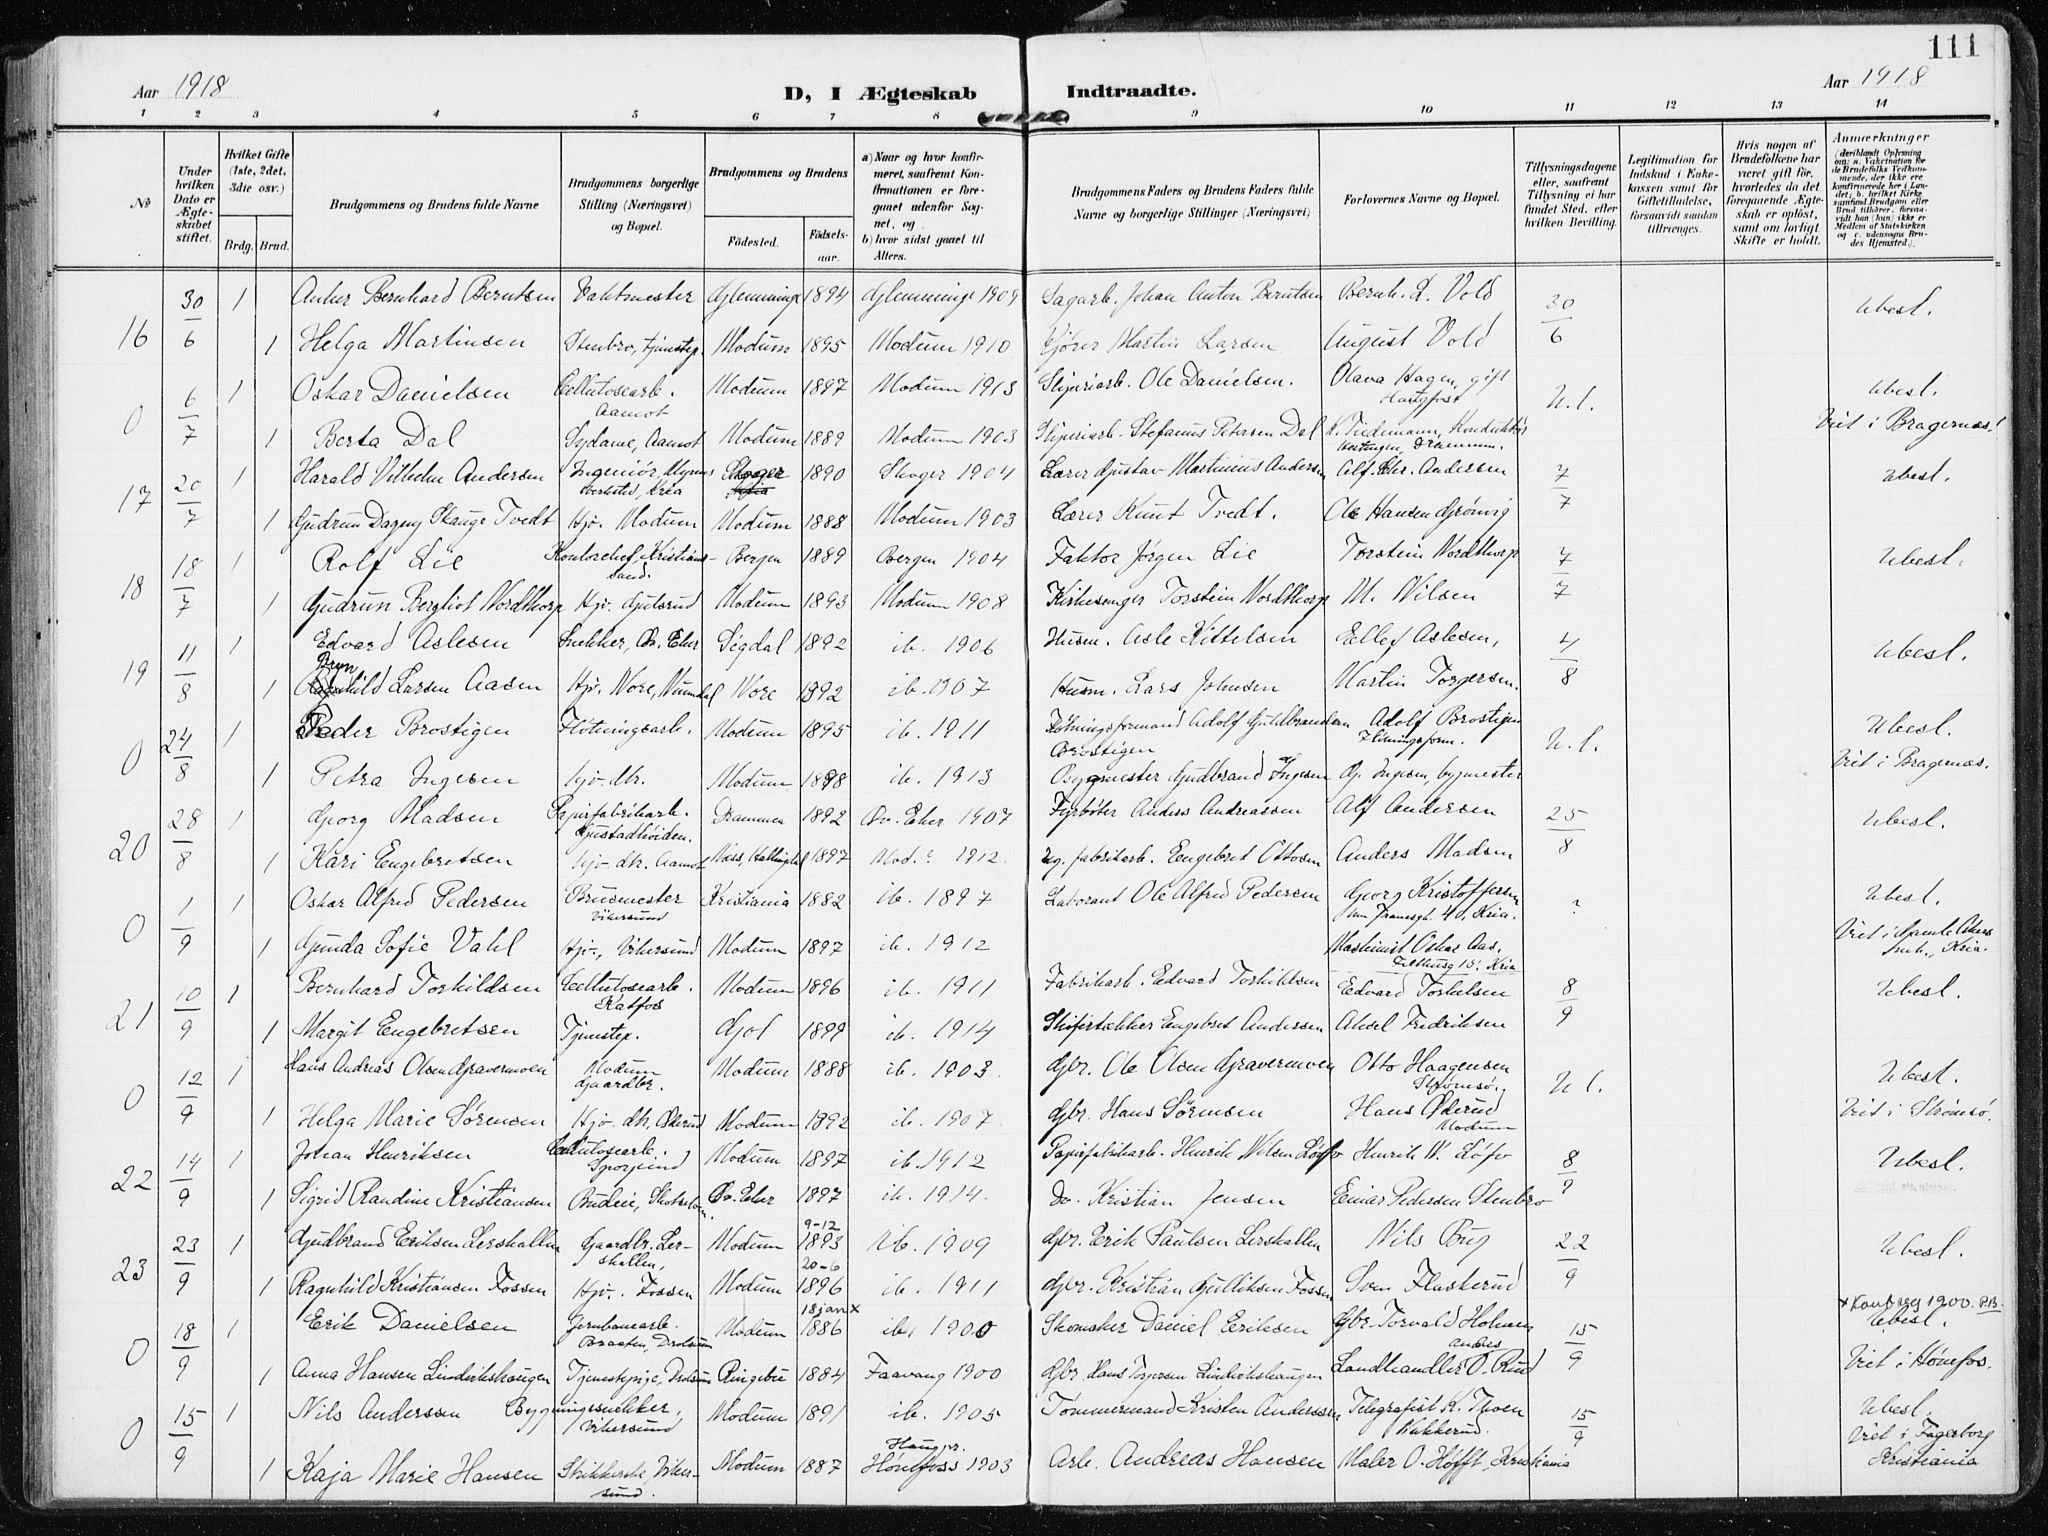 111
Aar 1918 D, I Ægteskab Indtraadte. Aar 1918
1 2 3 4 5 6 7 8 9 10 11 12 13 14
No
Under hvilken Dato er Ægteskabet stiftet.
Hvilket Gifte (1ste, 2det, 3die osv.)
Brdg. Brud.
Brudgommens og Brudens fulde Navne
Brudgommens borgerlige Stilling (Næringsvei) og Bopæl.
Brudgommens og Brudens
Födested. Födsels-aar.
a) Naar og hvor konfirmeret, saafremt Konfirmationen er foregaaet udenfor Sognet, og
b) hvor sidst gaaet til Alters.
Brudgommens Faders og Brudens Faders fulde Navne og borgerlige Stillinger (Næringsvei)
Forlovernes Navne og Bopæl.
Tillysningsdagene eller, saafremt Tillysning ei har fundet Sted, efter hvilken Bevilling.
Legitimation for Indskud i Enkekassen samt for Giftetilladelse, forsaavidt saadan tiltrænges.
Hvis nogen af Brudefolkene har været gift før, hvorledes da det foregaaende Ægteskab er oplöst, samt om lovligt Skifte er holdt.
Anmærkninger (deriblandt Oplysning om: a. Vakcination for de Brudefolks Vedkommende, der ikke ere konfirmerede her i Landet; b. hvilket Kirkesamfund Brudgom eller Brud tilhörer, forsaavidt han (hun) ikke er Medlem af Statskirken og c. udensogns Brudes Hjemsted.)
16 30/6 1 Bernhard Berntsen Vaktmester Glemminge 1894 Glemminge 1909 Sagarb. Johan Anton Berntsen Bernh. L. Vold 30/6 Ubesl.
1 Helga Martinsen Stenbro, tjenestep. Modum 1895 Modum 1910 Kjører Martin Larsen August Vold
0 6/7 1 Oskar Danielsen Cellulosearb. Aamot Modum 1897 Modum 1913 Sliperiarb. Ole Danielsen. Olava Hagen, gift U. l. Ubesl.
1 Berta Dal Sydame, Aamot Modum 1889 Modum 1903 Sliperiarb. Stefanus Petersen Dal K. Tiedemann, Drammen. Viet i Bragernæs!
17 20/7 1 Harald Vilhelm Andersen Ingeniør, Myrens Verksted, Kria Skoger 1890 Skoger 1904 Lærer Gustav Martinius Andersen Alf. Chr. Andersen 7/7 Ubesl.
1 Gudrun Dagny Skauge Tvedt Hjv. Modum Modum 1888 Modum 1903 Lærer Knut Tvedt. Ole Hansen Grönvig
18 18/7 1 Rolf Lie Kontorchef, Kristianssand. Bergen 1889 Bergen 1904 Faktor Jørgen Lie Torstein Nordthorp 7/7 Ubesl.
1 Gudrun Bergliot Nordthorp Hjv. Gulsrud Modum 1893 Modum 1908 Kirkesanger Torstein Nordthorp M. Nilsen
19 11/8 1 Edvard Aslesen Snekker, Øv. Eker Sigdal 1892 ib. 1906 Husm. Asle Kittelsen Ellef Aslesen, 4/8 Ubesl.
1 Brynhild Larsen Aasen Hjv. Nore, Numedal Nore 1892 ib. 1907 Husm. Lars Johnsen Martin Torgersen.
0 24/8 1 Peder Brostigen Fløtningsarb. Modum 1895 ib. 1911 Fløtningsformand Adolf Guldbrandsen Brostigen Adolf Brostigen Fløtningsform. U. l. Ubesl.
1 Petra Ingesen Hjv. dtr. Modum 1898 ib. 1913 Bygmester Gudbrand Ingesen G. Ingesen, bygmester Viet i Bragernæs.
20 28/8 1 Georg Madsen Papirfabrikarb. Gustadhøiden. Drammen 1892 Øv. Eker 1907 Fyrbøter Anders Andreassen Alf Andersen 25/8 Ubesl.
1 Kari Engebretsen Hjv. dtr. Aamot Næs, Hallingdal 1897 Mod.? 1912 fabrikarb. Engebret Ottosen Anders Madsen
0 1/9 1 Oskar Alfred Pedersen Brusmester Vikersund Kristiania 1882 ib. 1897 Laborant Ole Alfred Pedersen Georg Kristoffersen 40. Kria. ? Ubesl.
1 Gunda Sofie Vahl Hjv., Vikersund Modum 1897 ib. 1912 Maskinist Oskar Aas. 15. Kria Viet i Gamle Akers Kria.
21 10/9 1 Bernhard Toskildsen Cellulosearb. Katfos Modum 1896 ib. 1911 Fabrikarb. Edvard Toskildsen Edvard Toskelsen 8/9 Ubesl.
1 Margit Engebretsen Tjenestep. Gol 1899 ib. 1914 Skifertækker Engebret Andersen Aksel Fredriksen
0 12/9 1 Hans Andreas Olsen Gravermoen Modum Gaardbr. Modum 1888 ib. 1903. Gbr. Ole Olsen Gravermoen Otto Haagensen Strømsø. U. l. Ubesl.
1 Helga Marie Sørensen Hjv. dtr. Øderud Modum 1892 ib. 1907. Gbr. Hans Sørensen Hans Øderud Modum Viet i Strømsø.
22 14/9 1 Johan Henriksen Cellulosearb. Modum 1897 ib. 1912 Papirfabrikarb. Henrik Nilsen Henrik N. 8/9 Ubesl.
1 Sigrid Randine Kristiansen Budeie, Skotselven. Øv. Eker 1897 ib. 1914. Kristian Jensen Einar Pedersen Stenbro
23 23/9 1 Gudbrand Eriksen Lerskallen Gaardbr. Lerskallen, Modum 9-12 1893 ib. 1909 Gbr. Erik Paulsen Lerskallen Nils Bug 22/9 Ubesl.
1 Ragnhild Kristiansen Fossen Hjv. Fossen Modum 20-6 1896 ib. 1911 Gbr. Kristian Gulliksen Fossen Sven Flaskerud
0 18/9 1 Erik Danielsen Jernbanearb. Braaten, Drolsum Modum 18 jan x 1886 ib. 1900 Skomaker Daniel Eriksen Gbr. Torvald Holmen 15/9 x Konf. 1900. P.B. Ubesl.
1 Anna Hansen Lindvikshaugen Tjenestepige, Drolsum Ringebu 1884 Faavang 1900 Gbr. Hans Torgersen Lindvikshaugen Landhandler O. Rud Viet i Hønefos.
0 15/9 1 Nils Anderssen Bygningssnekker, Vikersund Modum 1891 ib. 1905 Tømmermand Kristen Anderssen Telegrafist K. Moen Nakkerud. 15/9 Ubesl. Viet i Fagerborg Kristiania
1 Kaja Marie Hansen Strikkerske, Vikersund. Modum 1887 Haugpr. Hönefoss 1903 Arb. Andreas Hansen Maler O. Høfft, Kristiania